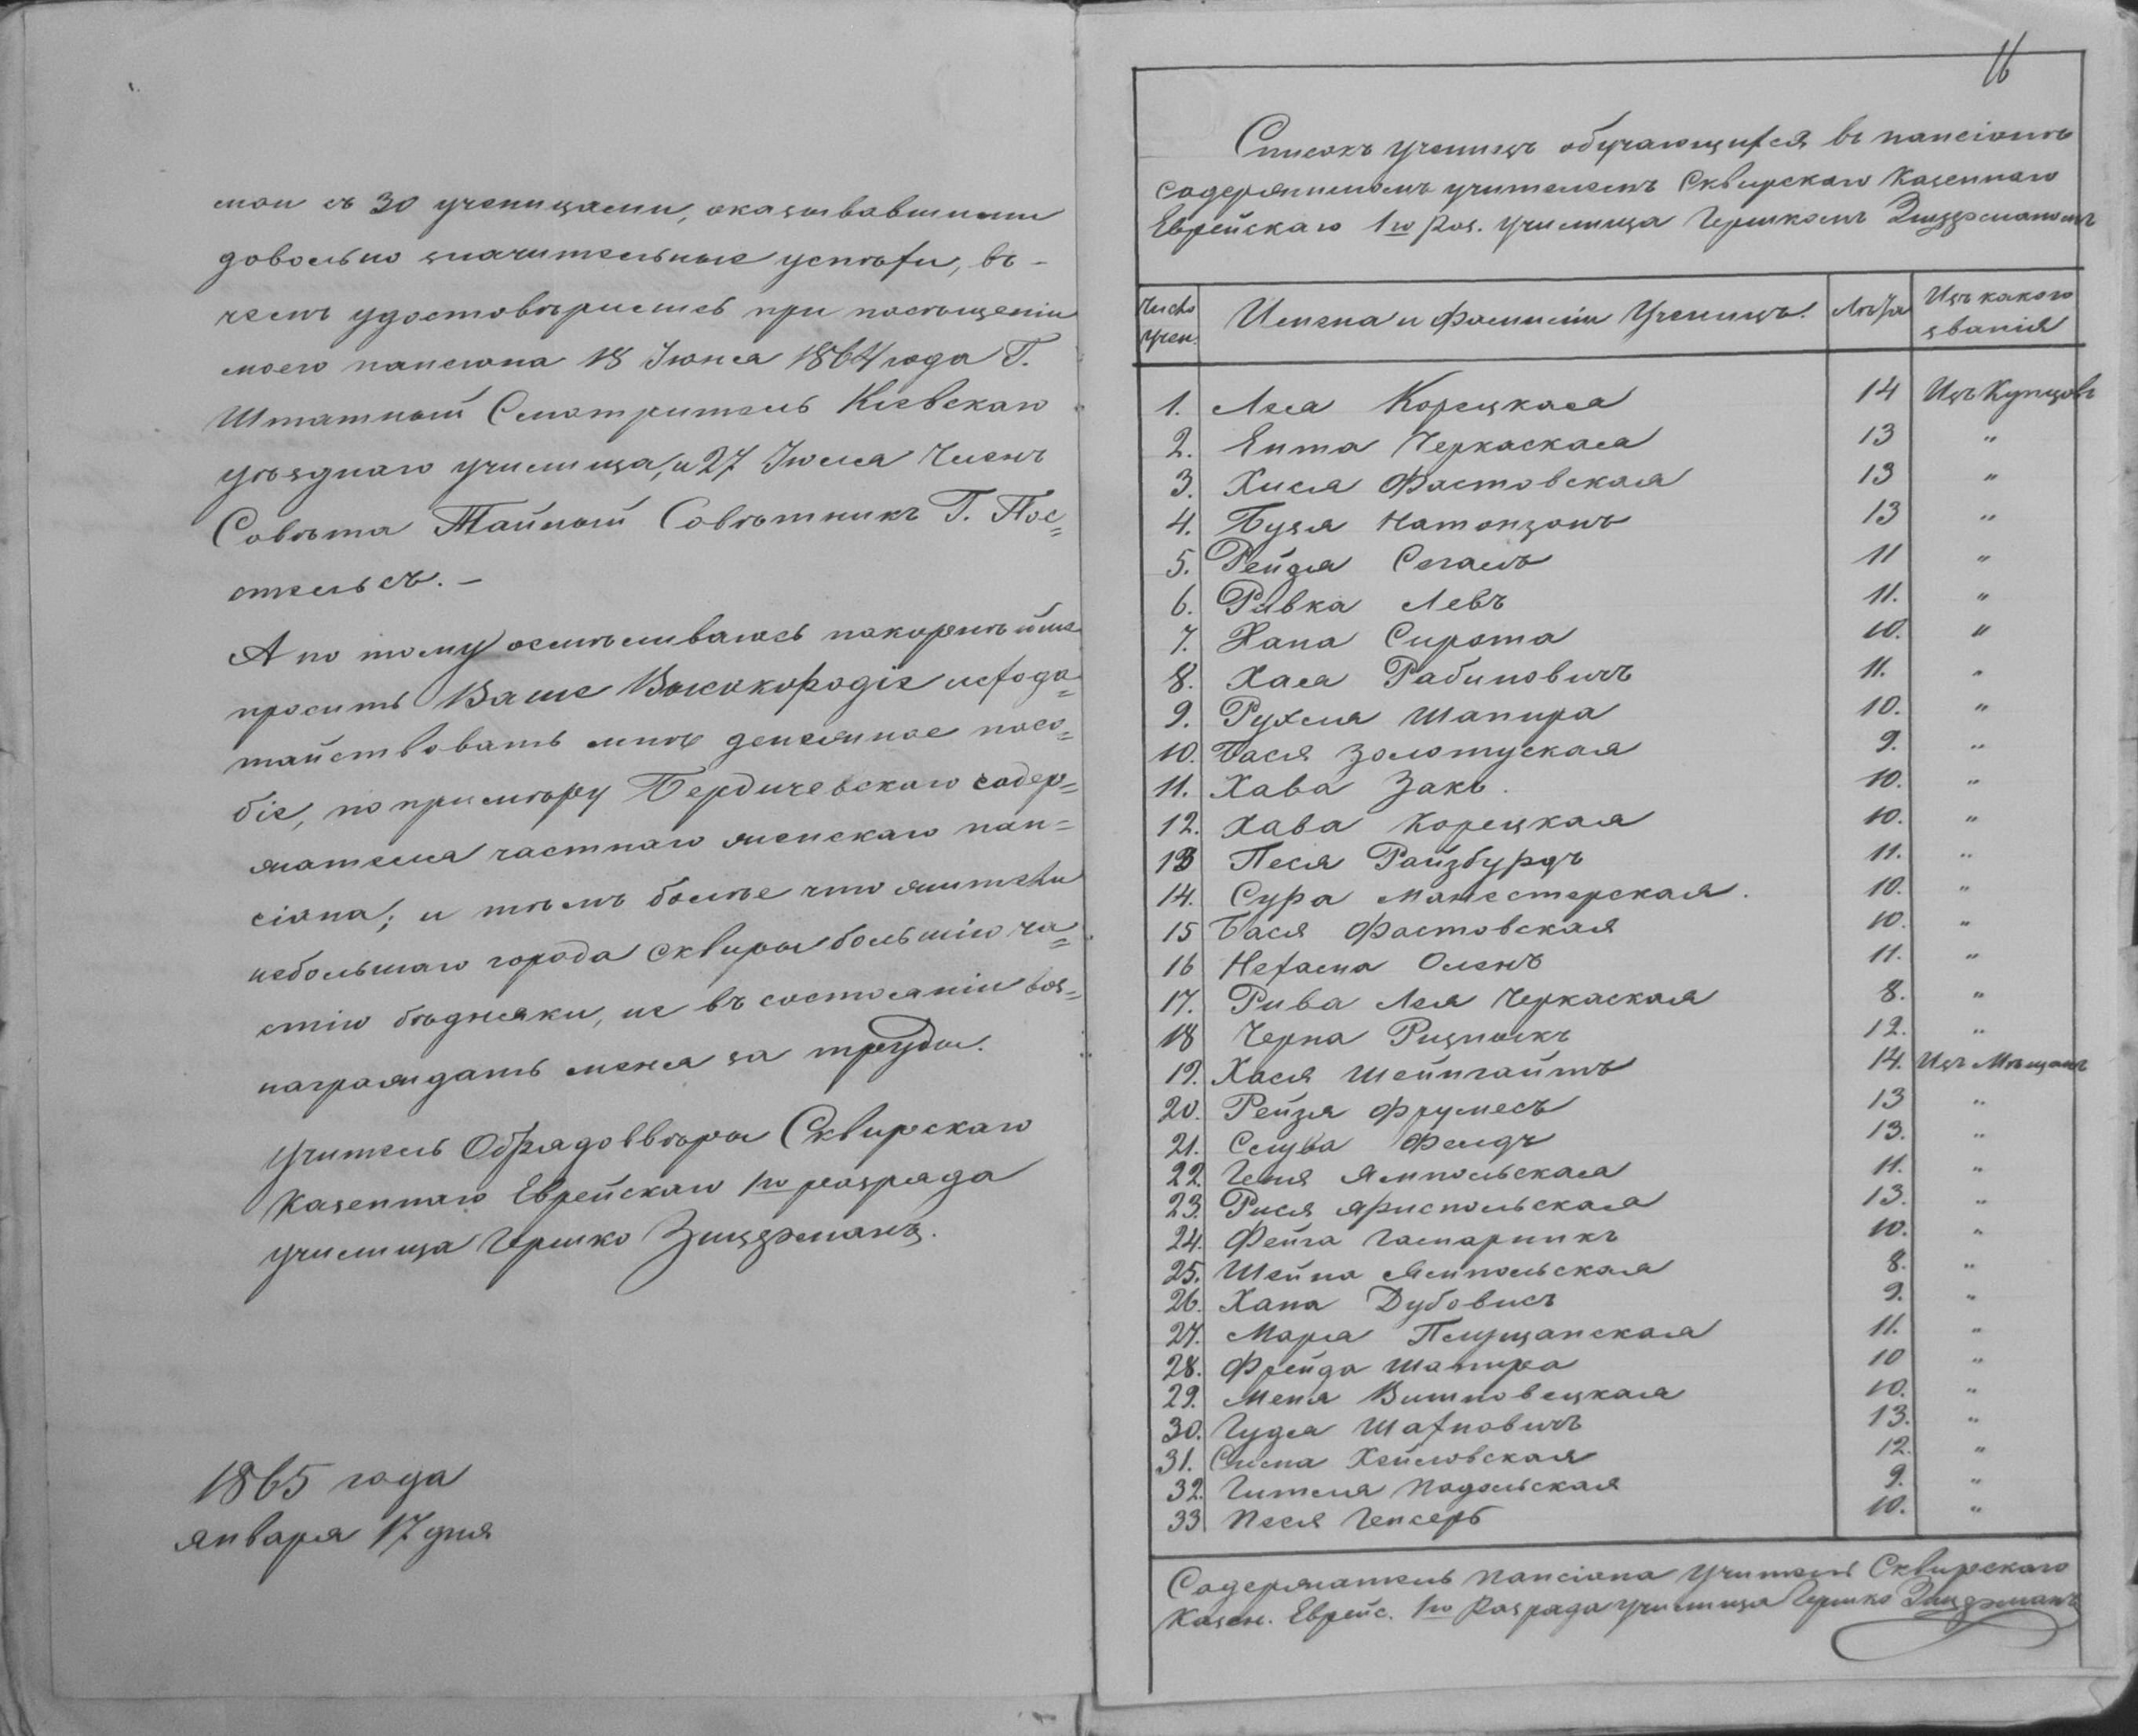 мои съ 30 ученицами, оказывавшими
довольно значительные успѣхи, въ
чемъ удостовѣрились при посѣщеніи
моего пансіона 18 Іюня 1864 года Г.
Штатный Смотритель Кіевскаго
уѣзднаго училища, и 27 Іюля Членъ
Совѣта Тайный Совѣтникъ Г. Пос=
тельсъ. –
А по тому осмѣливаюсь покорнѣйше
просить Ваше Высокородіе исхода=
тайствовать мнѣ денежное посо=
біе, по примѣру Бердичевскаго содер=
жателя частнаго женскаго пан=
сіона; и тѣмъ болѣе что жители
небольшаго города Сквиры большію ча=
стію бѣдняки, не въ состояніи воз=
награждать меня за труды.
Учитель Обрядоввѣры Сквирскаго
Казеннаго Еврейскаго 1го разряда
училища Гершко
1865 года
января 17 дня
16
Списокъ ученицъ обучающихся въ пансіонѣ
содержимомъ учителемъ Сквирскаго Казеннаго
Еврейскаго 1го Раз. училища Гершкомъ
Число Учен. Имена и Фамиліи Ученицъ. Лѣта Изъ какого званія
1. Лея Корецкая 14 Изъ Купцовъ
2. Ента Черкаская 13 "
3. Хися Фастовская 13 "
4. Бузя Натанзонъ 13 "
5. Рейзя Сегалъ 11 "
6. Ривка Левъ 11. "
7. Хана Сирота 10. "
8. Хая Рабиновичъ 11. "
9. Рухля Шапира 10. "
10. Бася Золотуская 9. "
11. Хава Закъ. 10. "
12. Хава Корецкая 10. "
13 Песя Райзбурдъ 11. "
14. Сура Манестерская. 10. "
15 Бася Фастовская 10. "
16 Нехама 11. "
17. Рива Лея Черкаская 8. "
18 Черна Ризныкъ 12. "
19. Хася Шейнгайтъ 14. Изъ Мѣщанъ
20. Рейзя Фрумесъ 13 "
21. Слува Фельдъ 13. "
22. Геня Ямпольская 11. "
23. Рися Яриспольская 13. "
24. Фейга 10. "
25. Шейна Ямпольская 8. "
26. Хана Дубовисъ 9. "
27. Марья 11. "
28. Фрейда Шапира 10 "
29. Меня Вишновецкая 10. "
30. Гудя Шахновичъ 13. "
31. Сима 12. "
32. Гителя Подольская 9. "
33. Песя 10. "
Содержатель пансіона Учитель Сквирскаго
Казен. Еврейс. 1го Разряда училища Гершко